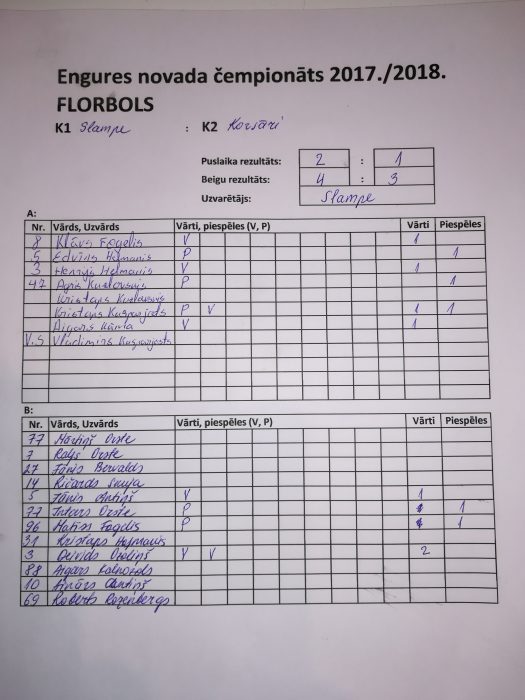 Engures novada čempionāts 2017./2018.
FLORBOLS
K1 Slampe : K2 Korsāri
Puslaika rezultāts: 2 : 1
Beigu rezultāts: 4 : 3
Uzvarētājs: Slampe
A:
Nr. Vārds, Uzvārds Vārti, piespēles (V, P) Vārti Piespēles
8 Klāvs Fogelis V 1
5 Edvīns Helmanis P 1
3 Henrijs Helmanis V 1
47 Agris P 1
Kristaps
Kristaps P V 1 1
Aigars V 1
V.S Vladimirs
B:
Nr. Vārds, Uzvārds Vārti, piespēles (V, P) Vārti Piespēles
77 Mārtiņš Ozste
7 Ralfs Ozste
27 Jānis Bervalds
14 Ričards Skuja
5 Jānis V 1
77 Intars Ozste P 1
96 Matīss Fogelis P 1
31 Kristaps Helmanis
3 Deivids Ozoliņš V V 2
88 Aigars
10 Ainārs
69 Roberts Rozenbergs